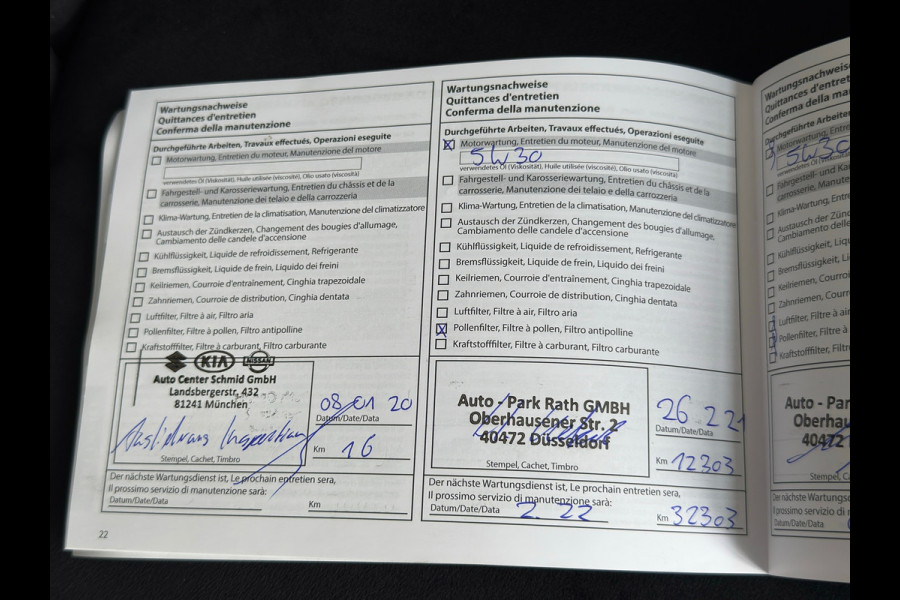 Wartungsnachweise
Quittances d'entretien
Conferma della manutenzione
Durchgeführte Arbeiten, Travaux effectués, Operazioni eseguite
Motorwartung, Entretien du moteur, Manutenzione del motore
verwendetes Öl (Viskosität), Huile utilisée (viscosité), Olio usato (viscosità)
Fahrgestell- und Karosseriewartung, Entretien du châssis et de la
carrosserie, Manutenzione dei telaio e della carrozzeria
Klima-Wartung, Entretien de la climatisation, Manutenzione del climatizzatore
Austausch der Zündkerzen, Changement des bougies d'allumage,
Cambiamento delle candele d'accensione
Kühlflüssigkeit, Liquide de refroidissement, Refrigerante
Bremsflüssigkeit, Liquide de frein, Liquido dei freini
Keilriemen, Courroie d'entraînement, Cinghia trapezoidale
Zahnriemen, Courroie de distribution, Cinghia dentata
Luftfilter, Filtre à air, Filtro aria
Pollenfilter, Filtre à pollen, Filtro antipolline
Kraftstofffilter, Filtre à carburant, Filtro carburante
KIA NISSAN
Auto Center Schmid GmbH
Landsbergerstr. 432
81241 München
Inspektion
Stempel, Cachet, Timbro
08 01 20
Datum/Date/Data
Km 16
Der nächste Wartungsdienst ist, Le prochain entretien sera,
Il prossimo servizio di manutenzione sarà:
Datum/Date/Data
Km
22
Wartungsnachweise
Quittances d'entretien
Conferma della manutenzione
Durchgeführte Arbeiten, Travaux effectués, Operazioni eseguite
Motorwartung, Entretien du moteur, Manutenzione del motore
5W30
verwendetes Öl (Viskosität), Huile utilisée (viscosité), Olio usato (viscosità)
Fahrgestell- und Karosseriewartung, Entretien du châssis et de la
carrosserie, Manutenzione dei telaio e della carrozzeria
Klima-Wartung, Entretien de la climatisation, Manutenzione del climatizzatore
Austausch der Zündkerzen, Changement des bougies d'allumage,
Cambiamento delle candele d'accensione
Kühlflüssigkeit, Liquide de refroidissement, Refrigerante
Bremsflüssigkeit, Liquide de frein, Liquido dei freini
Keilriemen, Courroie d'entraînement, Cinghia trapezoidale
Zahnriemen, Courroie de distribution, Cinghia dentata
Luftfilter, Filtre à air, Filtro aria
Pollenfilter, Filtre à pollen, Filtro antipolline
Kraftstofffilter, Filtre à carburant, Filtro carburante
Auto - Park Rath GMBH
Oberhausener Str. 2
40472 Düsseldorf
Stempel, Cachet, Timbro
26.2.21
Datum/Date/Data
Km 12303
Der nächste Wartungsdienst ist, Le prochain entretien sera,
Il prossimo servizio di manutenzione sarà:
Datum/Date/Data 2.22
Km 32303
Wartungsnachweise
Quittances d'entretien
Conferma della
Durchgeführte Arbeiten,
Motorwartung,
5W30
verwendetes
Fahrgestell-
carrosserie,
Klima-Wartung,
Austausch der
Cambiamento
Kühlflüssigkeit,
Bremsflüssigkeit,
Keilriemen,
Zahnriemen,
Luftfilter, Filtre à
Pollenfilter, Filtre à
Kraftstofffilter,
Auto - Par
Oberhau
40472
Stempel,
Der nächste
Il prossimo servizio
Datum/Date/Data